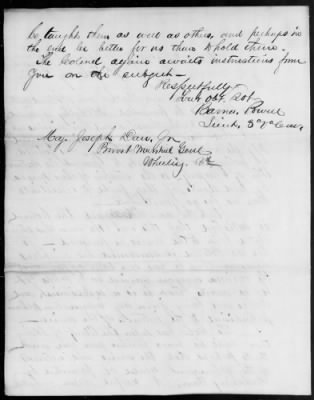 be taught them as well as others, and perhaps in
the end be better for us than to hold them.
The Colonel again awaits instructions from
you on the subject —
Respectfully
Your Obt Svt
Powell
Lieut. 3d Va Cav
Maj. Joseph Darr, Jr
Provost Marshal Genl
Wheeling